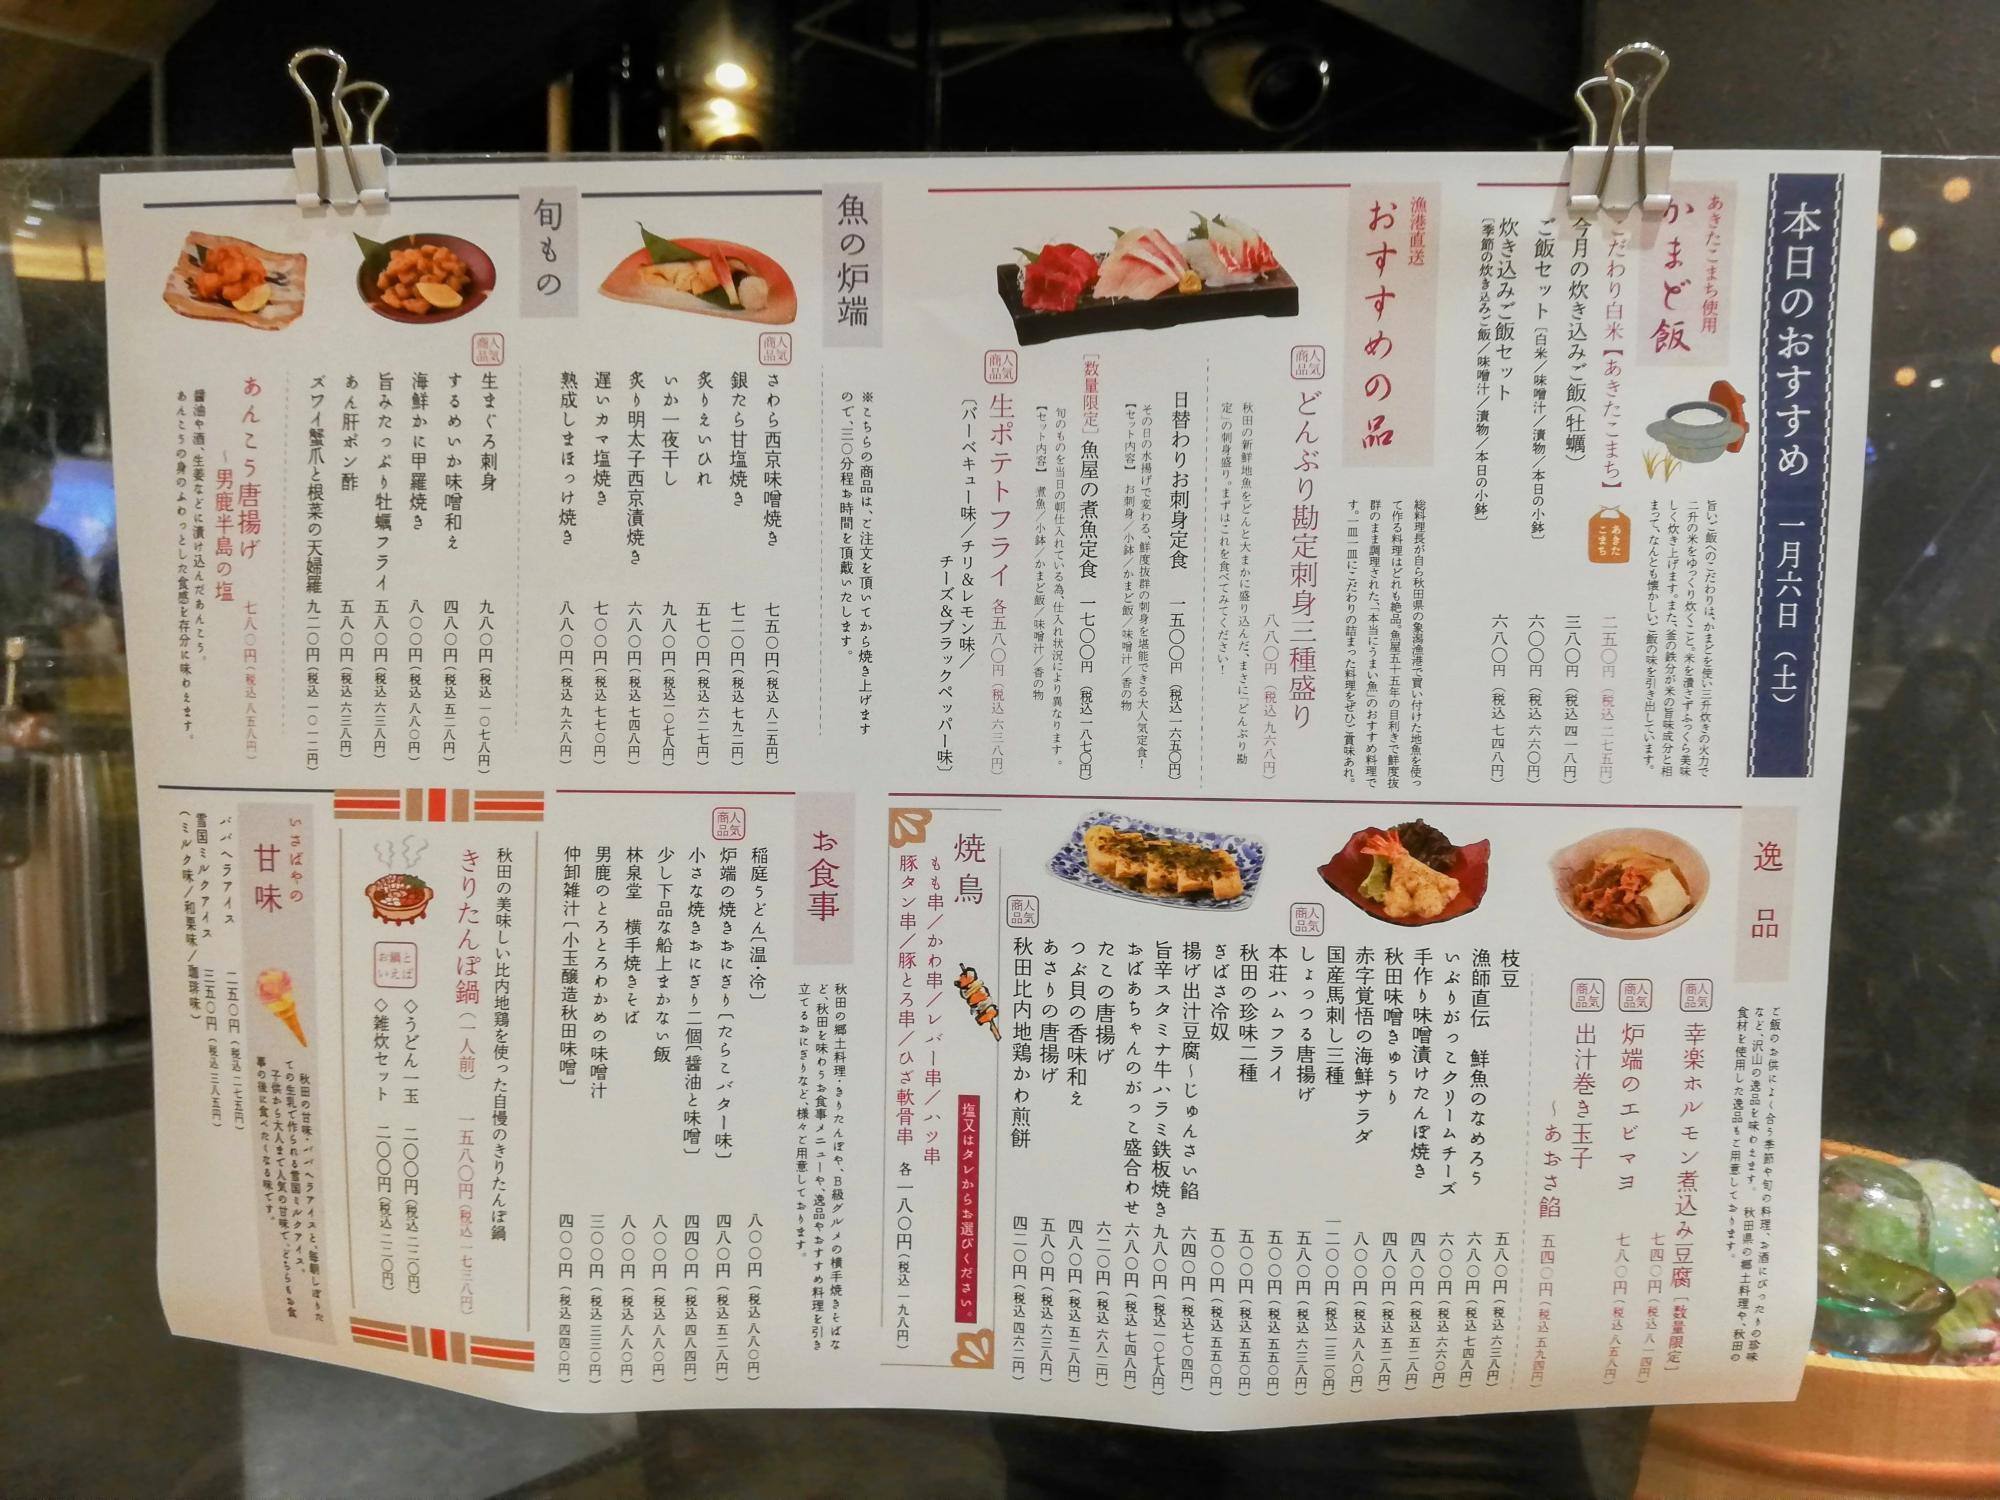 本日のおすすめ 一月六日(土)
あきたこまち使用
かまど飯
旨いご飯へのこだわりは、かまどを使い三升炊きの火力で
二升の米をゆっくり炊くこと。米を潰さずふっくら美味
しく炊き上げます。また、釜の鉄分が米の旨味成分と相
まって、なんとも懐かしいご飯の味を引き出しています。
こだわり白米【あきたこまち】 二五〇円(税込二七五円)
あきたこまち
今月の炊き込みご飯(牡蠣) 三八〇円(税込四一八円)
ご飯セット[白米/味噌汁/漬物/本日の小鉢] 六〇〇円(税込六六〇円)
炊き込みご飯セット 六八〇円(税込七四八円)
[季節の炊き込みご飯/味噌汁/漬物/本日の小鉢]
漁港直送
おすすめの品
総料理長が自ら秋田県の象潟漁港で買い付けた地魚を使っ
て作る料理はどれも絶品。魚屋五十五年の目利きで鮮度抜
群のまま調理された、「本当にうまい魚」のおすすめ料理で
す。一皿一皿にこだわりの詰まった料理をぜひご賞味あれ。
人気商品
どんぶり勘定刺身三種盛り
八八〇円(税込九六八円)
秋田の新鮮地魚をどんと大まかに盛り込んだ、まさに「どんぶり勘
定」の刺身盛り。まずはこれを食べてみてください!
日替わりお刺身定食 一五〇〇円(税込一六五〇円)
その日の水揚げで変わる、鮮度抜群の刺身を堪能できる大人気定食!
【セット内容】 お刺身/小鉢/かまど飯/味噌汁/香の物
[数量限定]魚屋の煮魚定食 一七〇〇円(税込一八七〇円)
旬のものを当日の朝仕入れている為、仕入れ状況により異なります。
【セット内容】 煮魚/小鉢/かまど飯/味噌汁/香の物
人気商品
生ポテトフライ 各五八〇円(税込六三八円)
[バーベキュー味/チリ&レモン味/
チーズ&ブラックペッパー味]
魚の炉端
※こちらの商品は、ご注文を頂いてから焼き上げます
ので、三〇分程お時間を頂戴いたします。
人気商品
さわら西京味噌焼き 七五〇円(税込八二五円)
銀たら甘塩焼き 七二〇円(税込七九二円)
炙りえいひれ 五七〇円(税込六二七円)
いか一夜干し 九八〇円(税込一〇七八円)
炙り明太子西京漬焼き 六八〇円(税込七四八円)
遅いカマ塩焼き 七〇〇円(税込七七〇円)
熟成しまほっけ焼き 八八〇円(税込九六八円)
旬もの
人気商品
生まぐろ刺身 九八〇円(税込一〇七八円)
するめいか味噌和え 四八〇円(税込五二八円)
海鮮かに甲羅焼き 八〇〇円(税込八八〇円)
旨みたっぷり牡蠣フライ 五八〇円(税込六三八円)
あん肝ポン酢 五八〇円(税込六三八円)
ズワイ蟹爪と根菜の天婦羅 九二〇円(税込一〇一二円)
あんこう唐揚げ
~男鹿半島の塩 七八〇円(税込八五八円)
醤油や酒、生姜などに漬け込んだあんこう。
あんこうの身のふわっとした食感を存分に味わえます。
逸品
ご飯のお供によく合う季節や旬の料理、お酒にぴったりの珍味
など、沢山の逸品を味わえます。秋田県の郷土料理や、秋田の
食材を使用した逸品もご用意しております。
人気商品
幸楽ホルモン煮込み豆腐[数量限定]
七四〇円(税込八一四円)
人気商品
炉端のエビマヨ 七八〇円(税込八五八円)
人気商品
出汁巻き玉子
~あおさ餡 五四〇円(税込五九四円)
枝豆 五八〇円(税込六三八円)
漁師直伝 鮮魚のなめろう 六八〇円(税込七四八円)
いぶりがっこクリームチーズ 六〇〇円(税込六六〇円)
手作り味噌漬けたんぽ焼き 四八〇円(税込五二八円)
秋田味噌きゅうり 四八〇円(税込五二八円)
赤字覚悟の海鮮サラダ 八〇〇円(税込八八〇円)
国産馬刺し三種 一二〇〇円(税込一三二〇円)
人気商品
しょっつる唐揚げ 五八〇円(税込六三八円)
本荘ハムフライ 五〇〇円(税込五五〇円)
秋田の珍味二種 五〇〇円(税込五五〇円)
ぎばさ冷奴 五〇〇円(税込五五〇円)
揚げ出汁豆腐~じゅんさい餡 六四〇円(税込七〇四円)
旨辛スタミナ牛ハラミ鉄板焼き 九八〇円(税込一〇七八円)
おばあちゃんのがっこ盛合わせ 六八〇円(税込七四八円)
たこの唐揚げ 六二〇円(税込六八二円)
つぶ貝の香味和え 四八〇円(税込五二八円)
あさりの唐揚げ 五八〇円(税込六三八円)
人気商品
秋田比内地鶏かわ煎餅 四二〇円(税込四六二円)
焼鳥
塩又はタレからお選びください。
もも串/かわ串/レバー串/ハツ串
豚タン串/豚とろ串/ひざ軟骨串 各一八〇円(税込一九八円)
お食事
秋田の郷土料理・きりたんぽや、B級グルメの横手焼きそばな
ど、秋田を味わうお食事メニューや、逸品やおすすめ料理を引き
立てるおにぎりなど、様々ご用意しております。
稲庭うどん[温・冷] 八〇〇円(税込八八〇円)
人気商品
炉端の焼きおにぎり[たらこバター味] 四八〇円(税込五二八円)
小さな焼きおにぎり二個[醤油と味噌] 四四〇円(税込四八四円)
少し下品な船上まかない飯 八〇〇円(税込八八〇円)
林泉堂 横手焼きそば 八〇〇円(税込八八〇円)
男鹿のとろとろわかめの味噌汁 三〇〇円(税込三三〇円)
仲卸雑汁[小玉醸造秋田味噌] 四〇〇円(税込四四〇円)
秋田の美味しい比内地鶏を使った自慢のきりたんぽ鍋
きりたんぽ鍋(一人前) 一五八〇円(税込一七三八円)
お鍋といえば
◇うどん一玉 二〇〇円(税込二二〇円)
◇雑炊セット 二〇〇円(税込二二〇円)
いさばやの
甘味
秋田の甘味・ババヘラアイスと、毎朝しぼりた
ての生乳で作られる雪国ミルクアイス。
子供から大人まで人気の甘味で、どちらもお食
事の後に食べたくなる味です。
ババヘラアイス 二五〇円(税込二七五円)
雪国ミルクアイス 三五〇円(税込三八五円)
(ミルク味/和栗味/珈琲味)